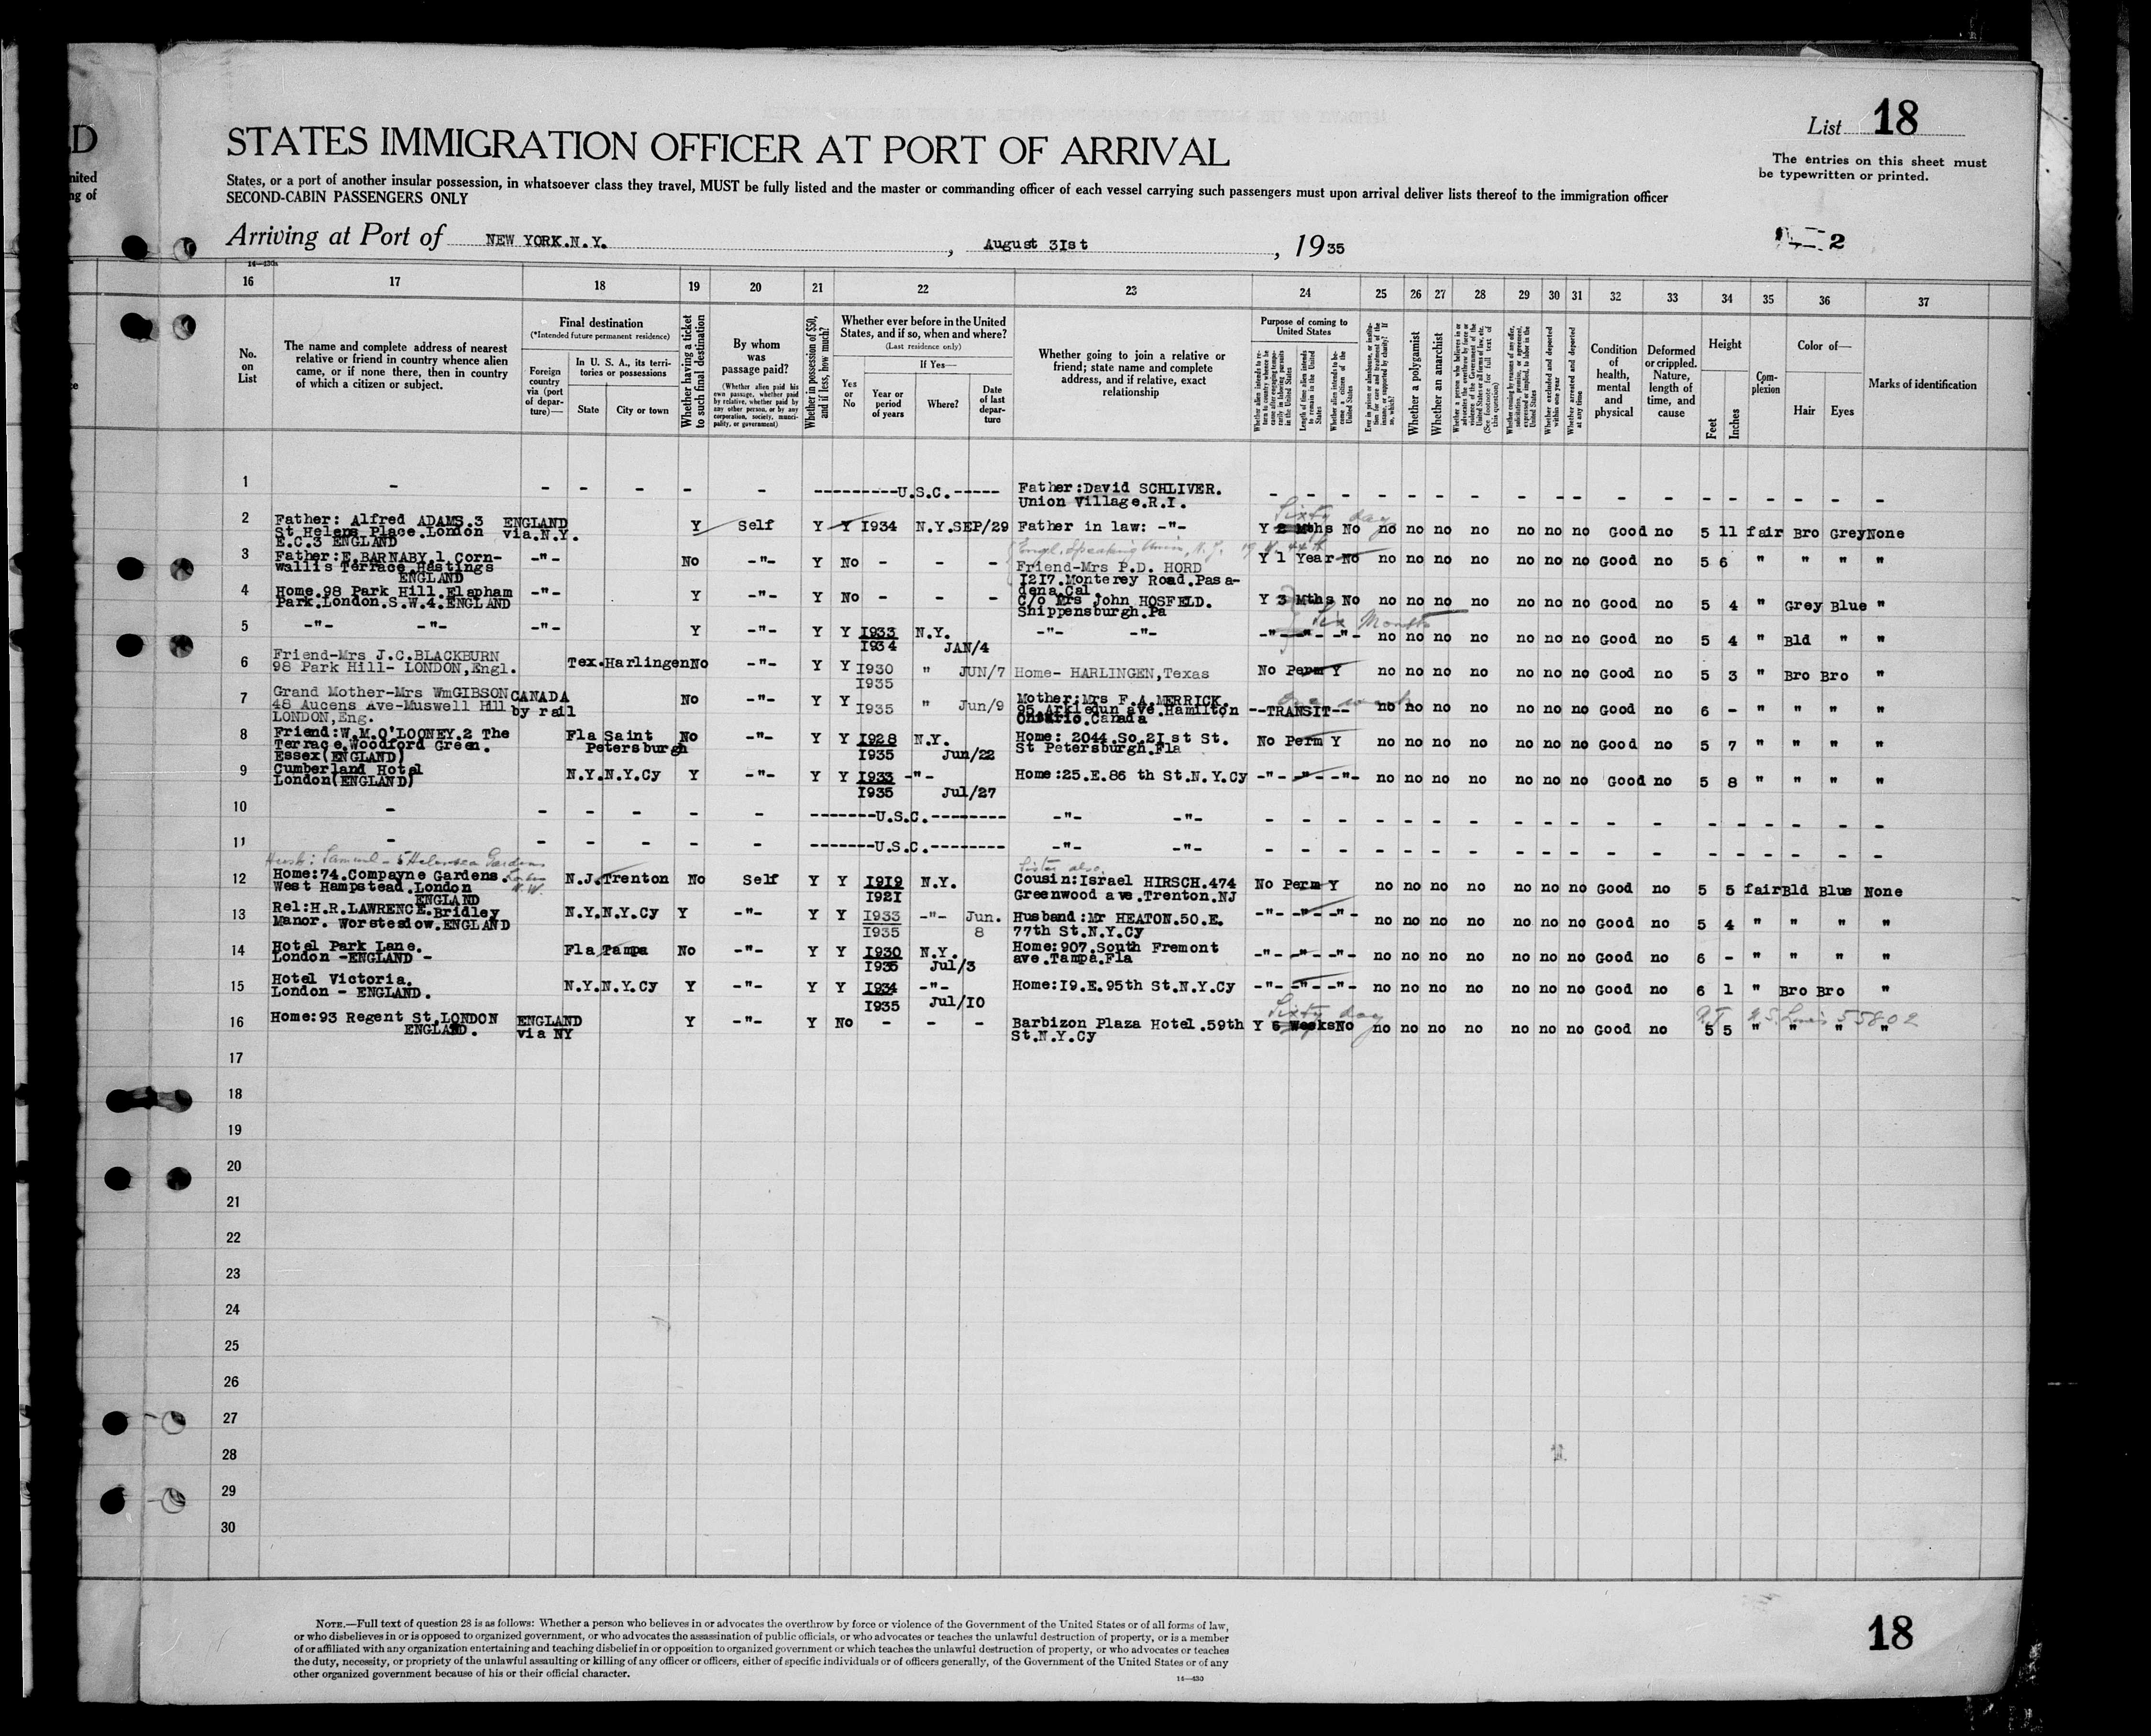 D
nited
ng of
List 18
The entries on this sheet must
be typewritten or printed.
STATES IMMIGRATION OFFICER AT PORT OF ARRIVAL
States, or a port of another insular possession, in whatsoever class they travel, MUST be fully listed and the master or commanding officer of each vessel carrying such passengers must upon arrival deliver lists thereof to the immigration officer
SECOND-CABIN PASSENGERS ONLY
Arriving at Port of NEW YORK.N.Y. , August 3Ist , 1935
2
16 17 18 19 20 21 22 23 24 25 26 27 28 29 30 31 32 33 34 35 36 37
No.
on
List
The name and complete address of nearest
relative or friend in country whence alien
came, or if none there, then in country
of which a citizen or subject.
Final destination
(*Intended future permanent residence)
Foreign
country
via (port
of depar-
ture)—
In U. S. A., its terri-
tories or possessions
State City or town
Whether having a ticket
to such final destination
By whom
was
passage paid?
(Whether alien paid his
own passage, whether paid
by relative, whether paid by
any other person, or by any
corporation, society, munici-
pality, or government)
Whether in possession of $50,
and if less, how much?
Whether ever before in the United
States, and if so, when and where?
(Last residence only)
Yes
or
No
If Yes—
Year or
period
of years
Where?
Date
of last
depar-
ture
Whether going to join a relative or
friend; state name and complete
address, and if relative, exact
relationship
Purpose of coming to
United States
Length of time alien intends
to remain in the United
States
Whether alien intends to be-
come a citizen of the
United States
Whether a polygamist
Whether an anarchist
Whether excluded and deported
within one year
Whether arrested and deported
at any time
Condition
of
health,
mental
and
physical
Deformed
or crippled.
Nature,
length of
time, and
cause
Height
Feet Inches
Com-
plexion
Color of—
Hair Eyes
Marks of identification
1 - - - - - - ---------U.S.C.----- Father:David SCHLIVER.
Union Village.R.I. - - - - - - - - - - - - - - - - -
Sixty day
2 Father: Alfred ADAMS.3 ENGLAND Y Self Y Y I934 N.Y.SEP/29 Father in law: -"- Y 2 Mths No no no no no no no no Good no 5 11 fair Bro Grey None
St Helens Place.London via.N.Y.
E.C.3 ENGLAND
3 Father:E.BARNABY.1 Corn- -"- No -"- Y No - - - Friend-Mrs P.D. HORD Y 1 Year No no no no no no no no Good no 5 6 " " " "
wallis Terrace.Hastings
ENGLAND
I2I7.Monterey Road.Pasa-
dena.Cal.
4 Home.98 Park Hill.Flapham -"- Y -"- Y No - - - C/o Mrs John HOSFELD. Y 3 Mths No no no no no no no no Good no 5 4 " Grey Blue "
Park.London.S.W.4.ENGLAND
Shippensburgh.Pa
Six Months
5 -"- -"- -"- Y -"- Y Y I933 N.Y. -"- -"- -"- -"- -"- no no no no no no no Good no 5 4 " Bld " "
I934 JAN/4
6 Friend-Mrs J.C.BLACKBURN Tex.Harlingen No -"- Y Y I930 " JUN/7 Home- HARLINGEN,Texas No Perm Y no no no no no no no Good no 5 3 " Bro Bro "
98 Park Hill- LONDON,Engl.
I935
7 Grand Mother-Mrs WmGIBSON CANADA No -"- Y Y I935 " Jun/9 Mother:Mrs F.A.MERRICK. --TRANSIT-- no no no no no no no Good no 6 - " " " "
48 Aucens Ave-Muswell Hill by rail
LONDON,Eng.
95 Arkledun ave.Hamilton
Ontario.Canada
8 Friend:W.M.O'LOONEY.2 The Fla Saint No -"- Y Y I928 N.Y. Home: 2044.So.2Ist St. No Perm Y no no no no no no no Good no 5 7 " " " "
Terrace.Woodford Green. Petersburgh I935 Jun/22 St Petersburgh.Fla
Essex(ENGLAND)
9 Cumberland Hotel N.Y.N.Y.Cy Y -"- Y Y I933 -"- Home:25.E.86 th St.N.Y.Cy -"- -"- -"- no no no no no no no Good no 5 8 " " " "
London(ENGLAND)
I935 Jul/27
10 - - - - - - -------U.S.C.-------- -"- -"- - - - - - - - - - - - - - - - - -
11 - - - - - - -------U.S.C.-------- -"- -"- - - - - - - - - - - - - - - - - -
Sister also.
12 Home:74.Compayne Gardens. N.J.Trenton No Self Y Y I9I9 N.Y. Cousin:Israel HIRSCH.474 No Perm Y no no no no no no no Good no 5 5 fair Bld Blue None
West Hampstead.London
ENGLAND
I92I Greenwood ave.Trenton.NJ
13 Rel:H.R.LAWRENCE.Bridley N.Y.N.Y.Cy Y -"- Y Y I933 -"- Jun. Husband:Mr HEATON.50.E. -"- -"- -"- no no no no no no no Good no 5 4 " " " "
Manor. Worstesdow.ENGLAND I935 8 77th St.N.Y.Cy
14 Hotel Park Lane. Fla Tampa No -"- Y Y I930 N.Y. Home:907.South Fremont -"- -"- -"- no no no no no no no Good no 6 - " " " "
London -ENGLAND - I935 Jul/3 ave.Tampa.Fla
15 Hotel Victoria. N.Y.N.Y.Cy Y -"- Y Y I934 -"- Home:I9.E.95th St.N.Y.Cy -"- -"- -"- no no no no no no no Good no 6 1 " Bro Bro "
London - ENGLAND. I935 Jul/I0
Sixty day
16 Home:93 Regent St.LONDON ENGLAND Y -"- Y No - - - Barbizon Plaza Hotel.59th Y 6 Weeks No no no no no no no no Good no 5 5 " " " "
ENGLAND. via NY St.N.Y.Cy
17
18
19
20
21
22
23
24
25
26
27
28
29
30
NOTE.—Full text of question 28 is as follows: Whether a person who believes in or advocates the overthrow by force or violence of the Government of the United States or of all forms of law,
or who disbelieves in or is opposed to organized government, or who advocates the assassination of public officials, or who advocates or teaches the unlawful destruction of property, or is a member
of or affiliated with any organization entertaining and teaching disbelief in or opposition to organized government or which teaches the unlawful destruction of property, or who advocates or teaches
the duty, necessity, or propriety of the unlawful assaulting or killing of any officer or officers, either of specific individuals or of officers generally, of the Government of the United States or of any
other organized government because of his or their official character.
18